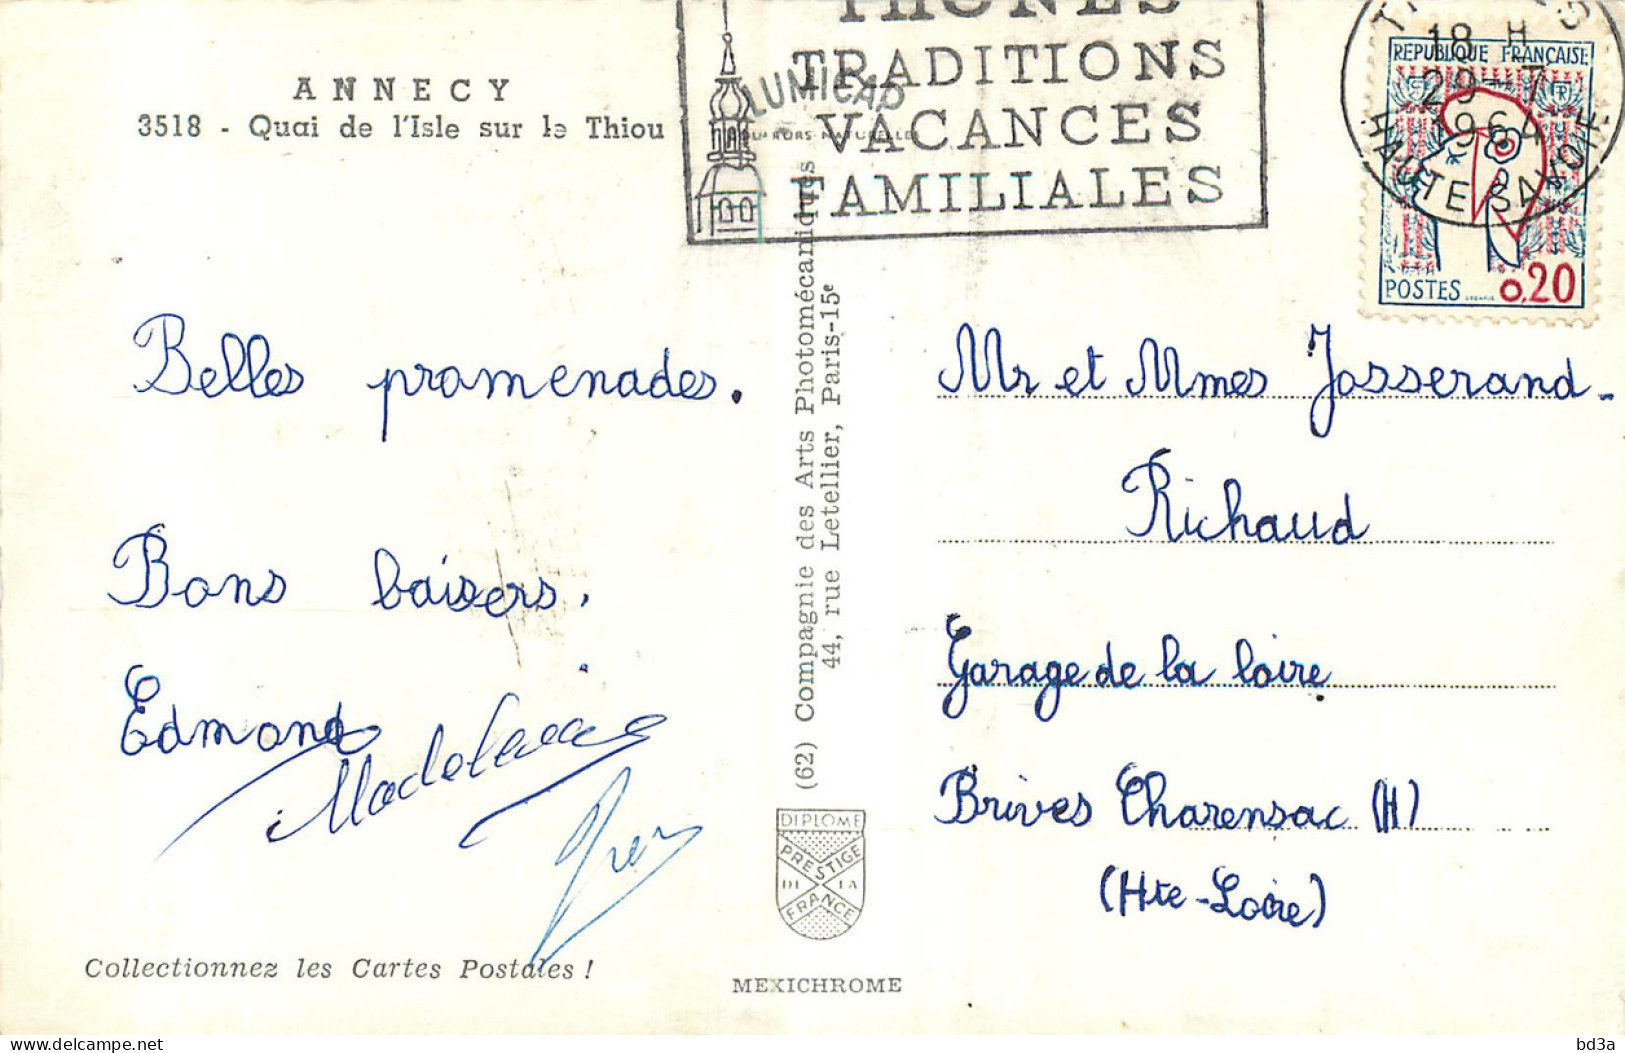 ANNECY
3518 - Quai de l'Isle sur le Thiou
THONES
TRADITIONS
VACANCES
FAMILIALES
LUMICAP
18 H
29-7
1964
HAUTE SAVOIE
REPUBLIQUE FRANÇAISE
POSTES 0,20
Belles promenades.
Bons baisers.
Edmond
Madeleine
Mr et Mmes Josserand-
Richaud
Garage de la Loire
Brives Charensac (H)
(Hte-Loire)
(62) Compagnie des Arts Photomécaniques
44, rue Letellier, Paris-15e
DIPLOME
PRESTIGE
DE LA
FRANCE
Collectionnez les Cartes Postales !
MEXICHROME
bd3a